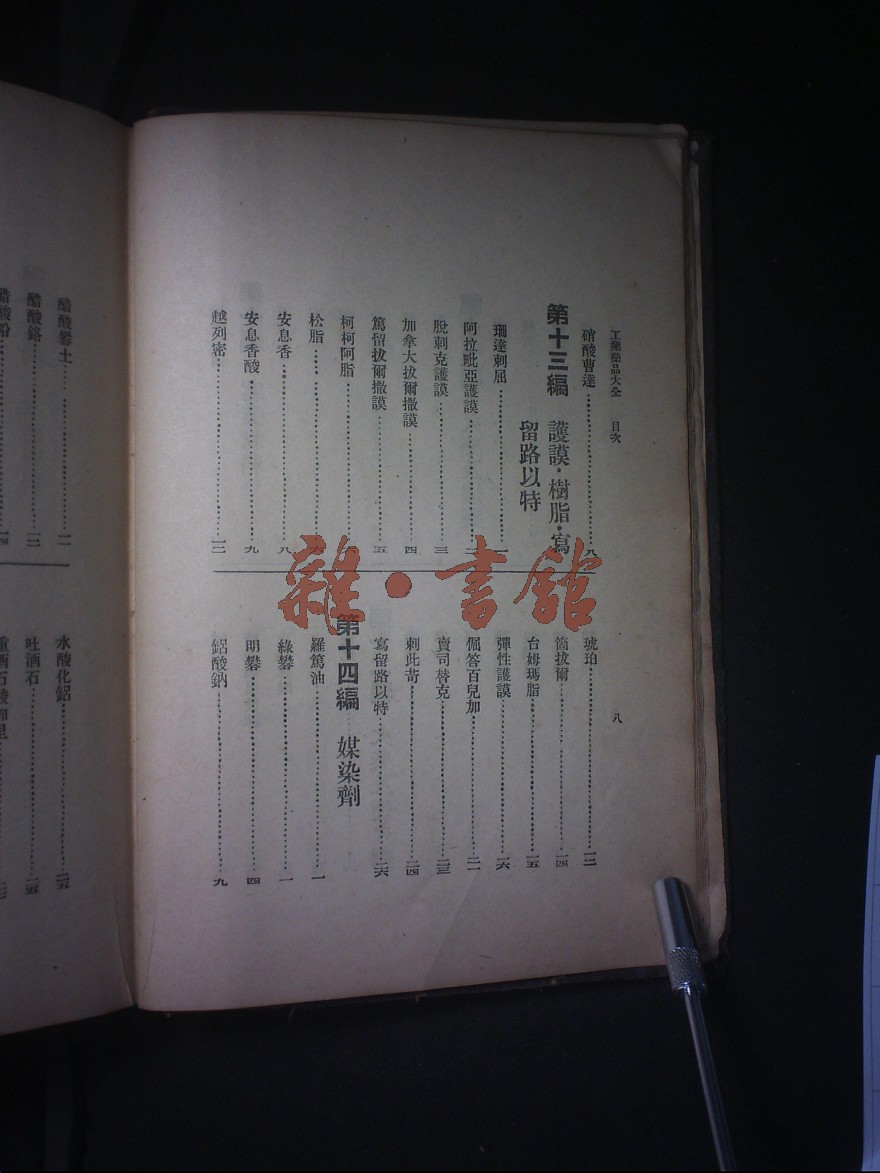 工業藥品大全 目次
八
硝酸曹達……八
第十三編 護謨·樹脂·寫
留路以特
珊達剌屈……一
阿拉毗亞護謨……二
脫剌克護謨……三
加拿大拔爾撒謨……四
篤留拔爾撒謨……五
柯柯阿脂
松脂
安息香……八
安息香酸……九
越列密……一二
琥珀……一三
箇拔爾……一四
台姆瑪脂……一五
彈性護謨……一六
倔答百兒加……二一
賣司替克……二三
刺此苛……二四
寫留路以特……二六
第十四編 媒染劑
羅篤油……一
綠礬……一
明礬……四
鋁酸鈉……九
醋酸礬土……一一
醋酸鉻……一三
水酸化鋁……二五
吐酒石……二五
雜·書館